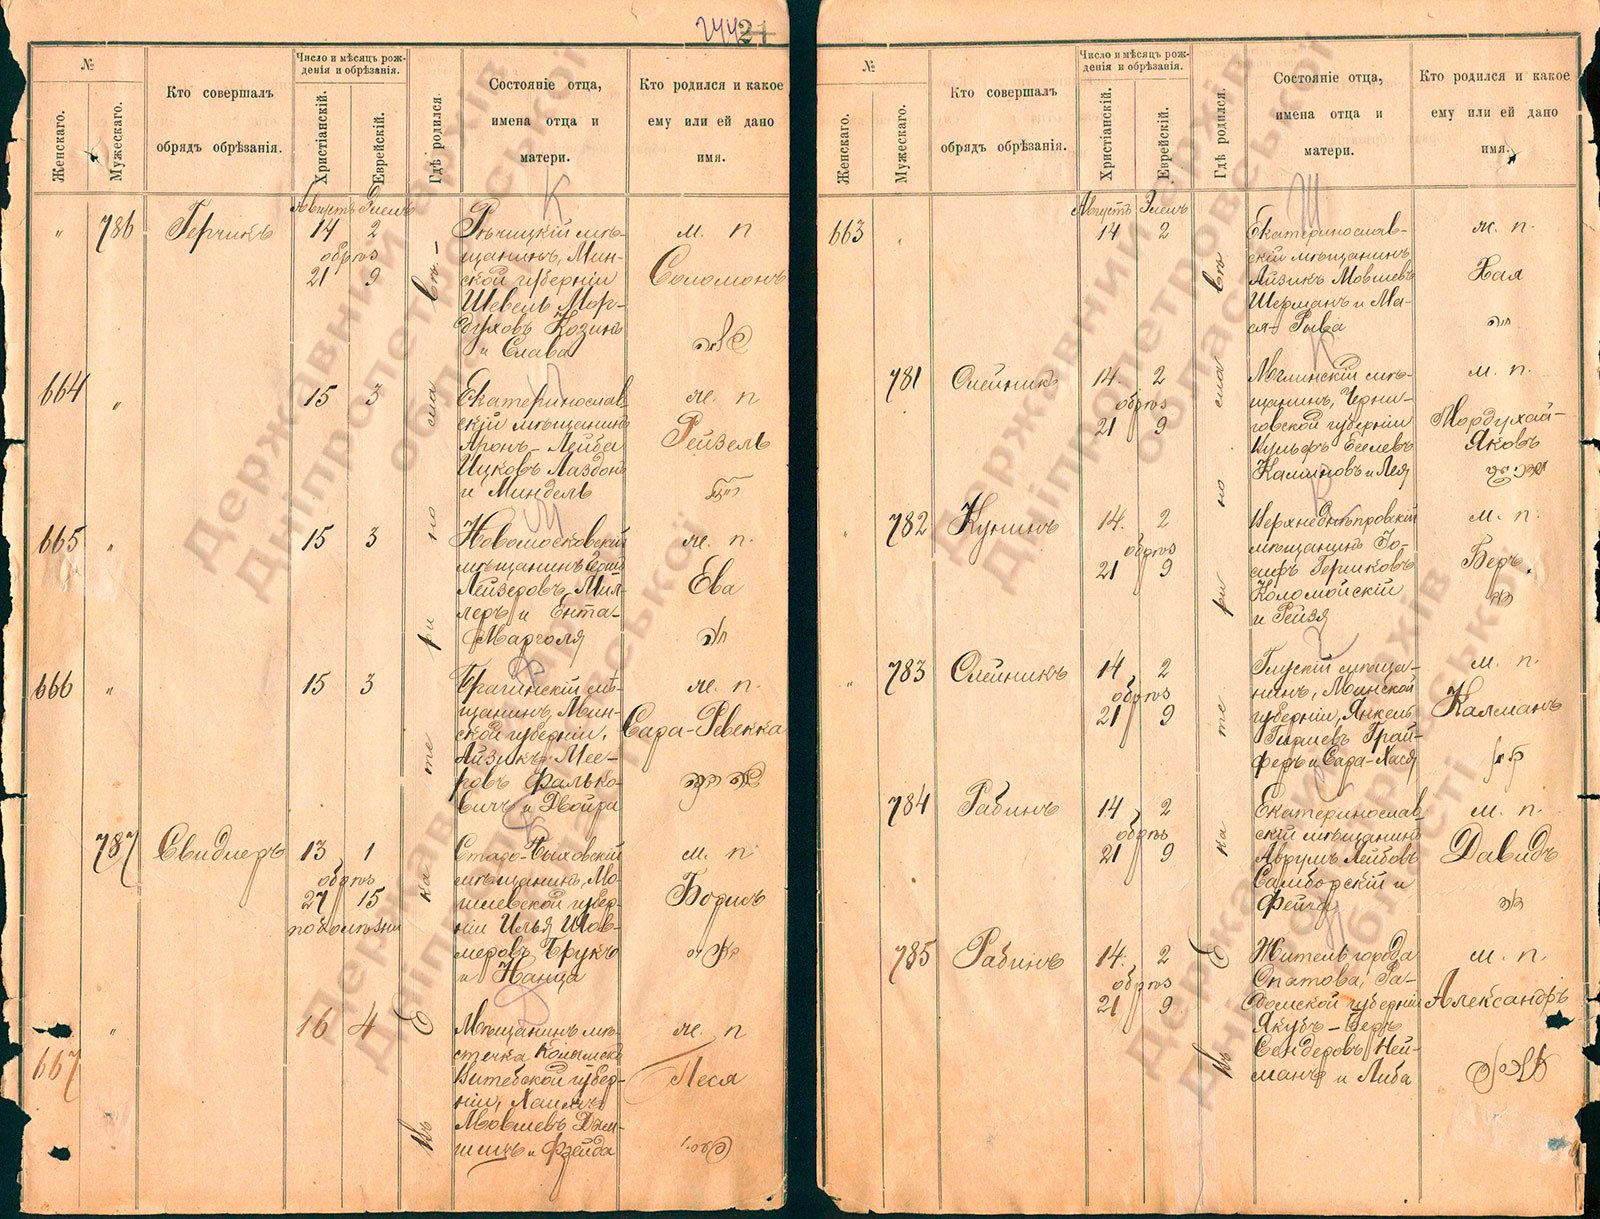 244
21
№
Женскаго.
Мужескаго.
Кто совершалъ
обрядъ обрѣзанія.
Число и мѣсяцъ рож-
денія и обрѣзанія.
Христіанскій.
Еврейскій.
Гдѣ родился.
Состояніе отца,
имена отца и
матери.
Кто родился и какое
ему или ей дано
имя.
Августъ Элелъ
Въ Екатеринославѣ
„ 786 Герчикъ 14 2
обрѣз
21 9
Рѣчицкій мѣ-
щанинъ, Мин-
ской губерніи
Шевель Мор-
духовъ Козинъ
и Слава
м. п
Соломонъ
664 „ 15 3
Екатеринослав
скій мѣщанинъ
Аронъ-Лейба
Ицковъ Лаздонъ
и Миндель
ж. п
Рейзель
665 „ 15 3
Новомосковскій
мѣщанинъ
Лейзеровъ Мил-
леръ и Ента-
Марголя
ж. п.
Ева
666 „ 15 3
Брагинскій мѣ-
щанинъ, Мин-
ской губерніи,
Айзикъ Мее-
ровъ Фалько-
вичъ и Двойра
ж. п.
Сара-Ревекка
787 Свидлеръ 13 1
обрѣз
27 15
по болѣзни
Старо-Быховскій
мѣщанинъ, Мо-
гилевской губер-
ніи Илья Шов-
меровъ Брукъ
и Ханца
м. п
Борисъ
667 „ 16 4
Мѣщанинъ мѣ-
стечка
Витебской губер-
ніи,
Мовшевъ
и Фрейда
ж. п
Песя
№
Женскаго.
Мужескаго.
Кто совершалъ
обрядъ обрѣзанія.
Число и мѣсяцъ рож-
денія и обрѣзанія.
Христіанскій.
Еврейскій.
Гдѣ родился.
Состояніе отца,
имена отца и
матери.
Кто родился и какое
ему или ей дано
имя.
Августъ Элелъ
Въ Екатеринославѣ
663 „ 14 2
Екатеринослав-
скій мѣщанинъ
Айзикъ Мовшевъ
Шерманъ и Ма-
ся-Рыва
ж. п.
Хая
חיה
781 Олейникъ 14 2
обрѣз
21 9
Мглинскій мѣ-
щанинъ, Черни-
говской губерніи
Вульфъ Еселевъ
Калиновъ и Лея
м. п.
Мордухай-
Яковъ
„ 782 Кунинъ 14. 2
обрѣз
21 9
Верхнеднѣпровскій
мѣщанинъ Іо-
сифъ Гершковъ
Коломойскій
и Рейзя
м. п.
Беръ
„ 783 Олейникъ 14 2
обрѣз
21 9
Глускій мѣща-
нинъ, Минской
губерніи, Янкель
Гилиевъ Грай-
феръ и Сара-Хася
м. п.
Калманъ
784 Рабинъ 14 2
обрѣз
21 9
Екатеринослав
скій мѣщанинъ
Аврумъ Лейбовъ
Самборскій и
Фейга
м. п.
Давидъ
דוד
785 Рабинъ 14. 2
обрѣз
21 9
Житель города
Опатова, Ра-
домской губерніи
Якубъ-Беръ
Сендеровъ Ней-
манъ и Либа
м. п.
Александръ
Державний архів
Дніпропетровської
області
Державний архів
Дніпропетровської
області